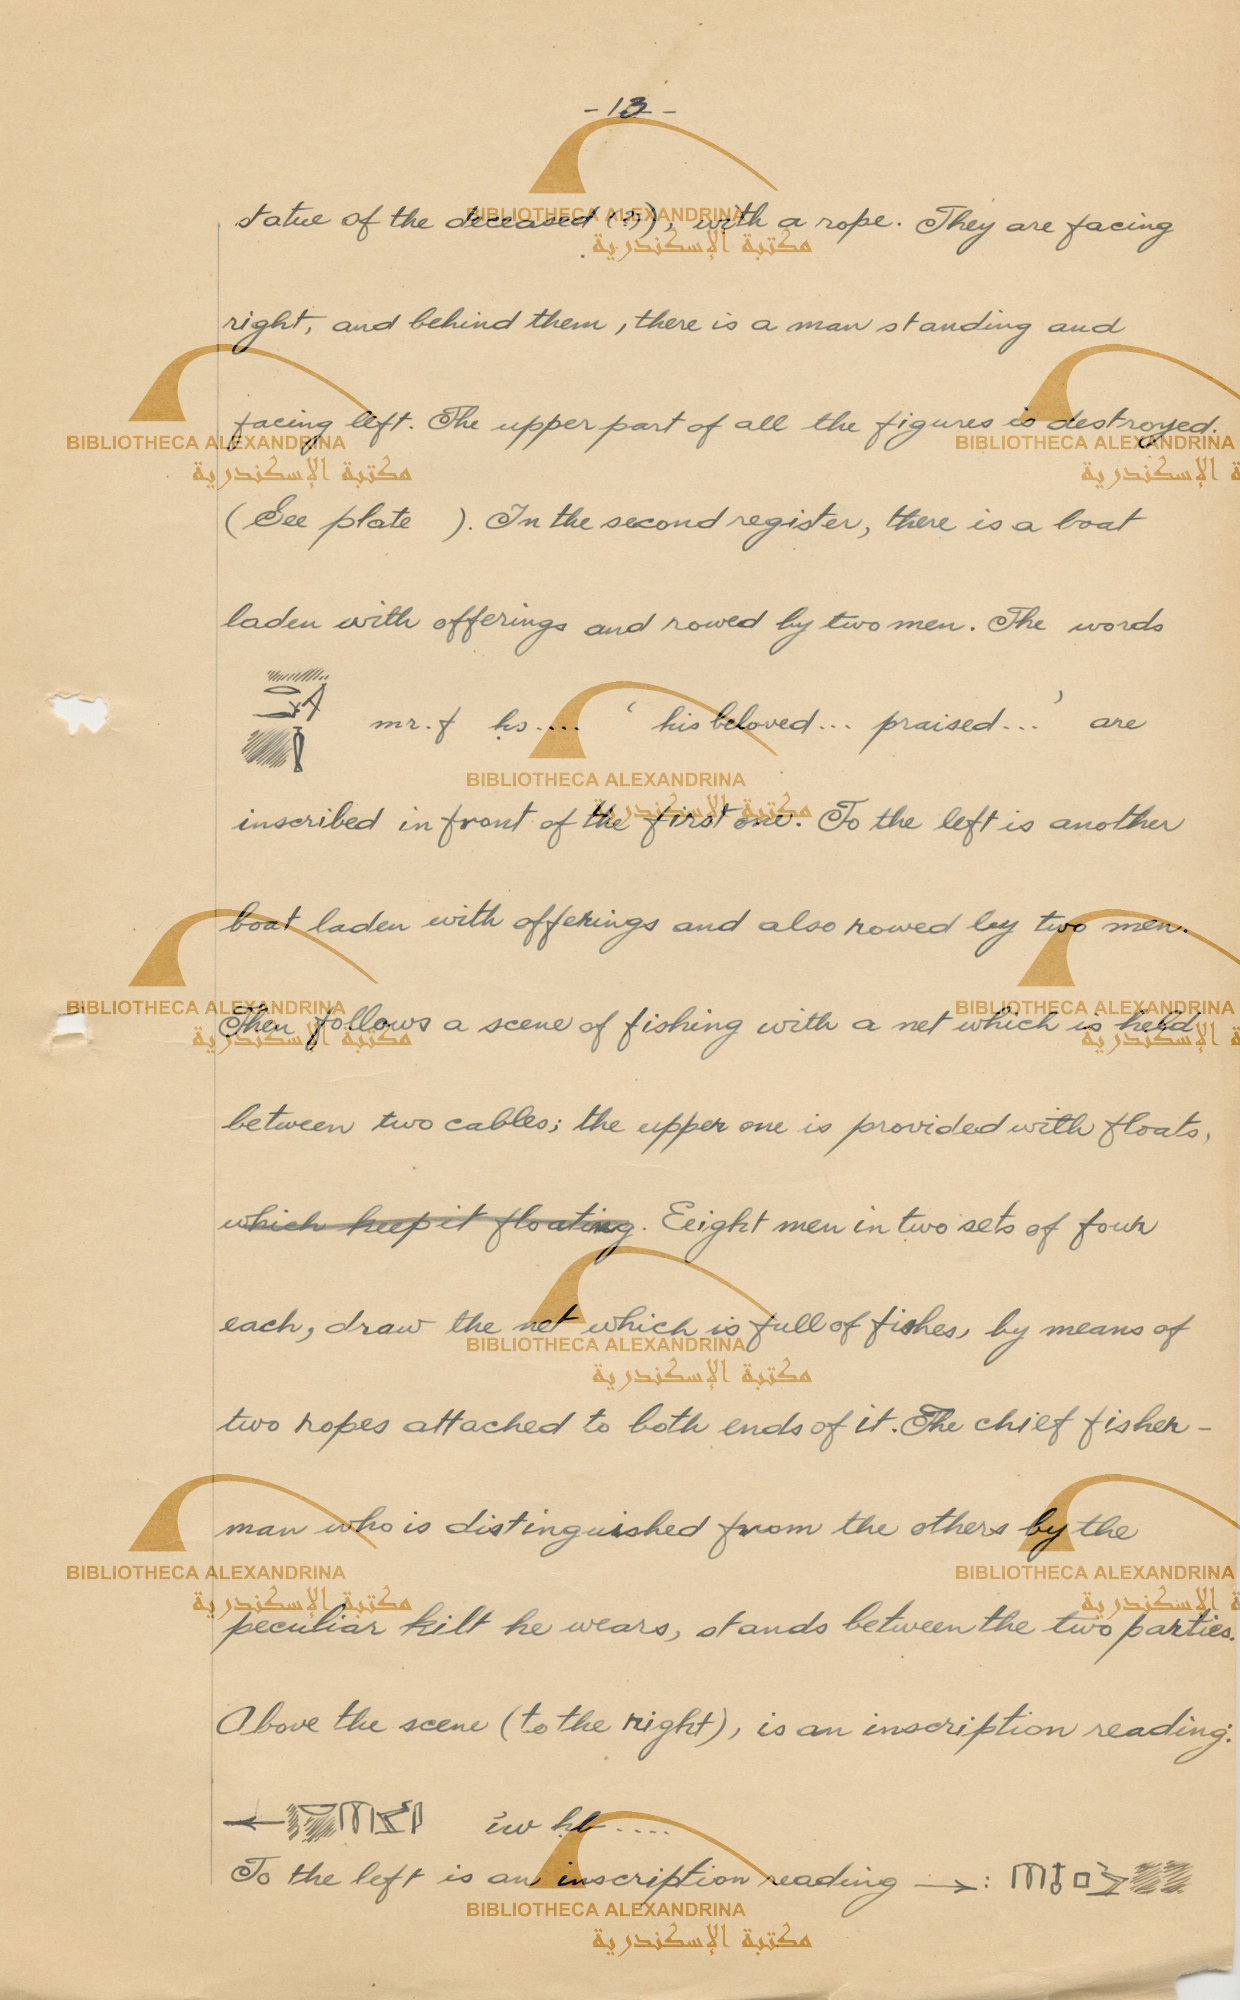 -13-
statue of the deceased (?), with a rope. They are facing
right, and behind them, there is a man standing and
facing left. The upper part of all the figures is destroyed.
(See plate    ). In the second register, there is a boat
laden with offerings and rowed by two men. The words
mr.f ḥs.... ‘ his beloved... praised...’ are
inscribed in front of the first one. To the left is another
boat laden with offerings and also rowed by two men.
Then follows a scene of fishing with a net which is held
between two cables; the upper one is provided with floats,
which keep it floating. Eeight men in two sets of four
each, draw the net which is full of fishes, by means of
two ropes attached to both ends of it. The chief fisher-
man who is distinguished from the others by the
peculiar kilt he wears, stands between the two parties.
Above the scene (to the right), is an inscription reading:
← iw ḥb ....
To the left is an inscription reading →:
BIBLIOTHECA ALEXANDRINA
مكتبة الإسكندرية